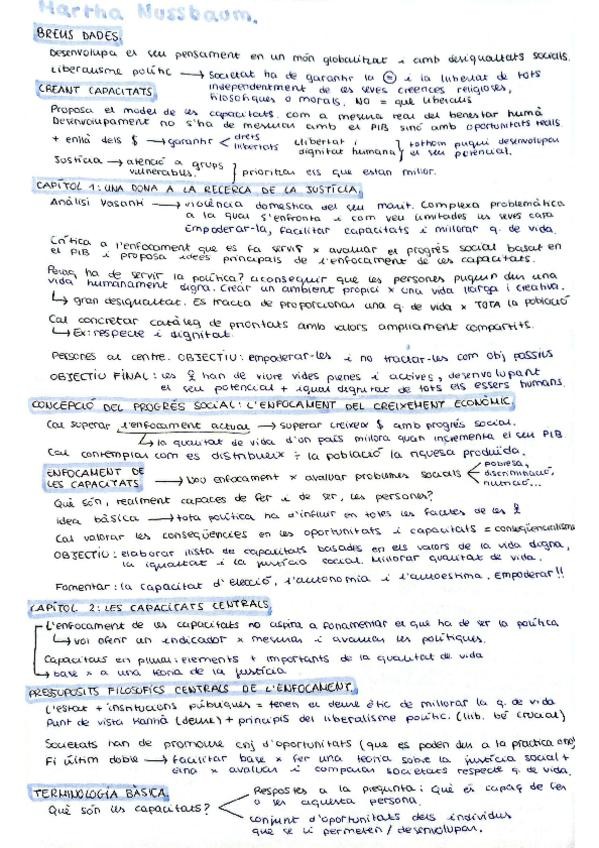 Martha Nussbaum.
BREUS DADES.
Desenvolupa el seu pensament en un món globalitzat i amb desigualtats socials.
Liberalisme polític → societat ha de garantir la = i la llibertat de tots
independentment de les seves creences religioses,
filosòfiques o morals. NO = que liberals
CREANT CAPACITATS
Proposa el model de les capacitats com a mesura real del benestar humà
Desenvolupament no s'ha de mesurar amb el PIB sinó amb oportunitats reals.
+ enllà dels $ → garantir < drets llibertats
llibertat i dignitat humana } tothom pugui desenvolupar el seu potencial.
Justícia → atenció a grups vulnerables. } prioritzar els que estan millor.
CAPÍTOL 1: UNA DONA A LA RECERCA DE LA JUSTÍCIA.
Anàlisi Vasanti → violència domèstica del seu marit. Complexa problemàtica
a la qual s'enfronta i com veu limitades les seves capa
Empoderar-la, facilitar capacitats i millorar q. de vida.
Crítica a l'enfocament que es fa servir x avaluar el progrés social basat en
el PIB i proposa idees principals de l'enfocament de les capacitats.
ha de servir la política? aconseguir que les persones puguin dur una
vida humanament digna. Crear un ambient propici x una vida llarga i creativa.
↳ gran desigualtat. Es tracta de proporcionar una q. de vida x TOTA la població
Cal concretar catàleg de prioritats amb valors ampliament compartits.
↳ Ex: respecte i dignitat.
Persones al centre. OBJECTIU: empoderar-les i no tractar-les com obj passius
OBJECTIU FINAL: les han de viure vides plenes i actives, desenvolupant
el seu potencial + igual dignitat de tots els éssers humans.
CONCEPCIÓ DEL PROGRÉS SOCIAL: L'ENFOCAMENT DEL CREIXEMENT ECONÒMIC.
Cal superar l'enfocament actual → superar creixem $ amb progrés social.
↳ la qualitat de vida d'un país millora quan incrementa el seu PIB
Cal contemplar com es distribueix ÷ la població la riquesa produïda.
ENFOCAMENT DE
LES CAPACITATS → Nou enfocament x avaluar problemes socials < pobresa, discriminació, nutrició...
Què són, realment capaces de fer i de ser, les persones?
idea bàsica → tota política ha d'influir en totes les facetes de les
Cal valorar les conseqüències en les oportunitats i capacitats = conseqüencialisme
OBJECTIU: elaborar llista de capacitats basades en els valors de la vida digna,
la igualtat i la justícia social. Millorar qualitat de vida.
Fomentar: la capacitat d'elecció, l'autonomia i l'autoestima. Empoderar!!
CAPÍTOL 2: LES CAPACITATS CENTRALS.
L'enfocament de les capacitats no aspira a fonamentar el que ha de ser la política
↳ vol oferir un indicador x mesurar i avaluar les polítiques.
Capacitats en plural: elements + importants de la qualitat de vida
↳ base x a una teoria de la justícia
PRESSUPOSITS FILOSÒFICS CENTRALS DE L'ENFOCAMENT.
L'estat + institucions públiques = tenen el deure ètic de millorar la q. de vida
Punt de vista Kantià (deure) + principis del liberalisme polític. (llib. bé crucial)
Societats han de promoure cnj d'oportunitats (que es poden dur a la pràctica
Fi últim doble → facilitar base x fer una teoria sobre la justícia social +
eina x avaluar i comparar societats respecte q. de vida.
TERMINOLOGIA BÀSICA.
Què són les capacitats? <
Respostes a la pregunta: Què és capaç de fer
o ser aquesta persona.
conjunt d'oportunitats dels individus
que se li permeten / desenvolupar.